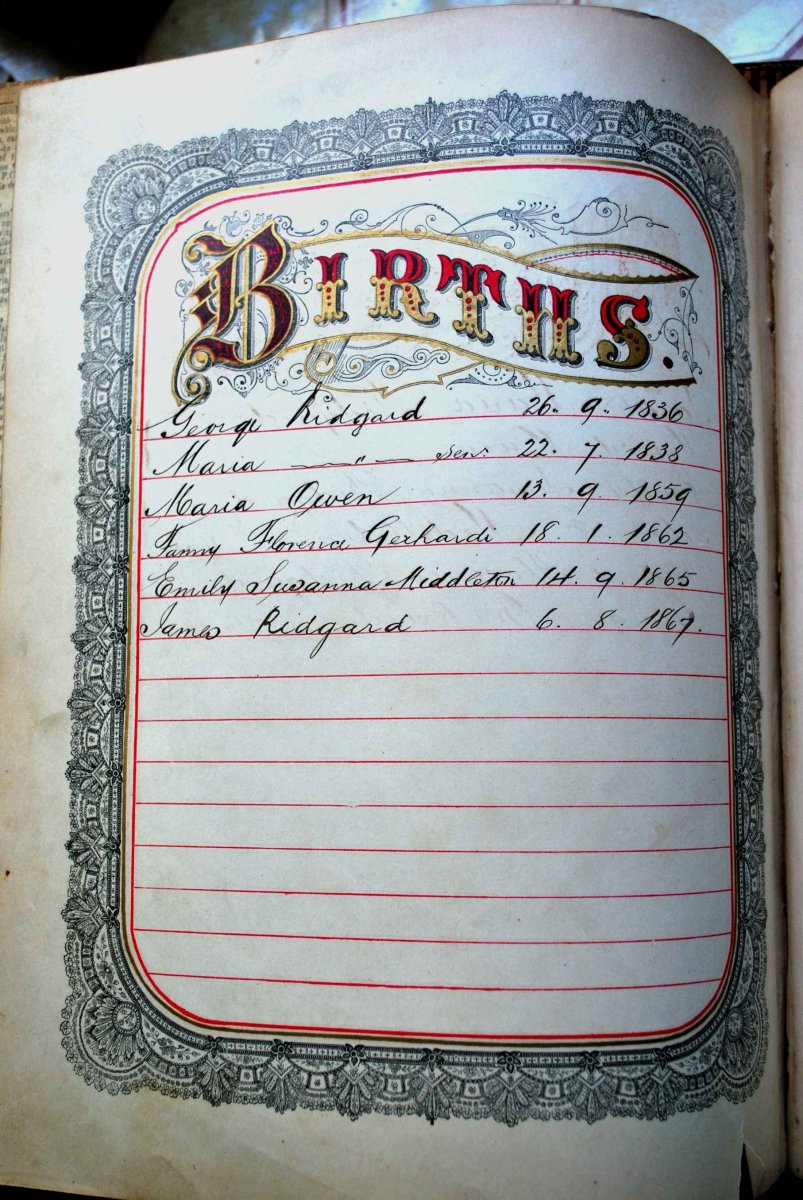 BIRTHS.
George Ridgard 26. 9. 1836
Maria —〃— Senr. 22. 7. 1838
Maria Owen 13. 9 1859
Fanny Florence Gerhardi 18. 1. 1862
Emily Suzanna Middleton 14. 9. 1865
James Ridgard 6. 8. 1867.